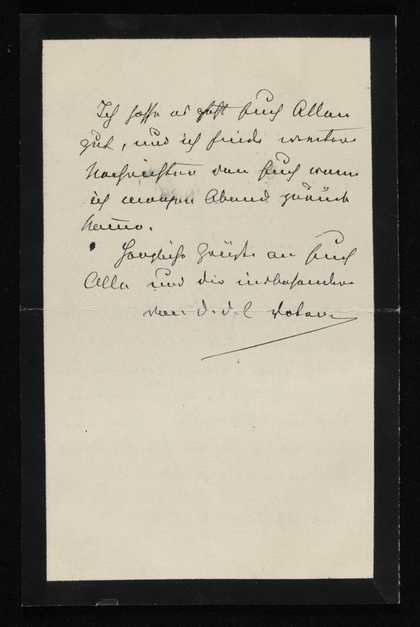 Ich hoffe es geht Euch Allen
gut, und ich finde weitere
Nachrichten von Euch wenn
ich morgen Abend zurück
komme.
Herzliche Grüße an Euch
Alle und die insbesondere
von D. d. l. Vater